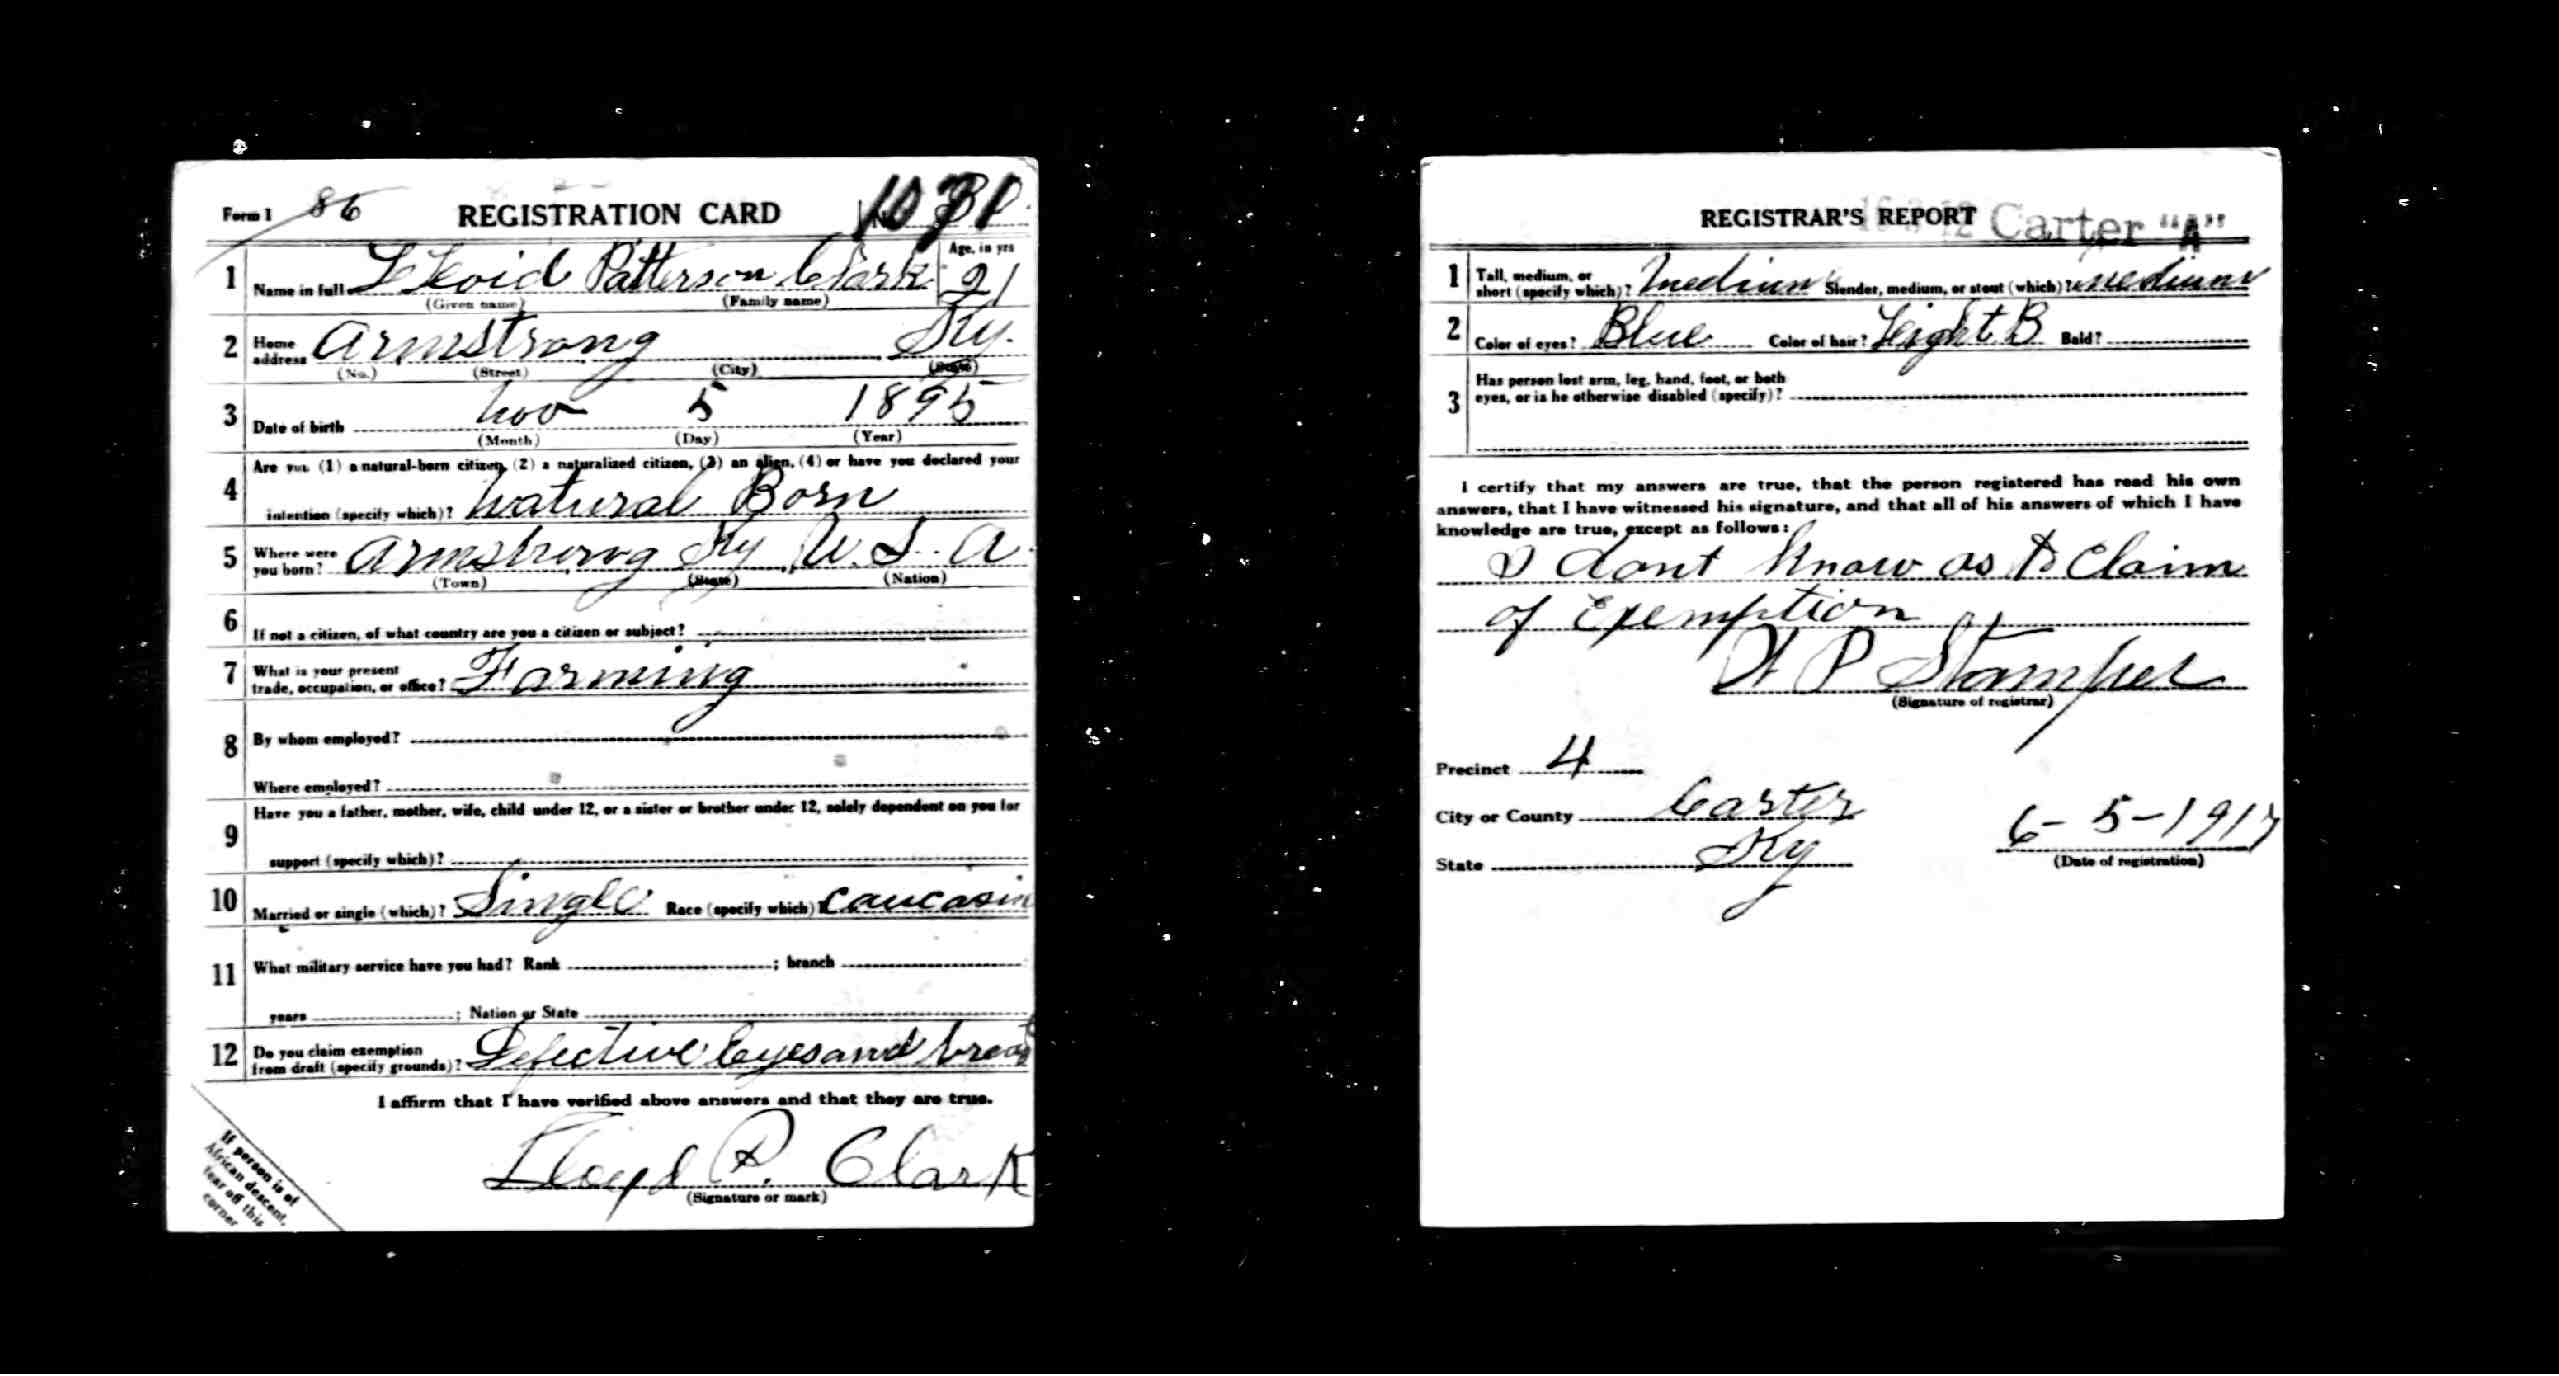 Form 1 86 REGISTRATION CARD
1 Name in full LLoid Patterson Clark Age, in yrs 21
(Given name) (Family name)
2 Home address Armstrong Ky.
(No.) (Street) (City) (State)
3 Date of birth Nov 5 1895
(Month) (Day) (Year)
4 Are you (1) a natural-born citizen, (2) a naturalized citizen, (3) an alien, (4) or have you declared your
intention (specify which)? Natural Born
5 Where were you born? Armstrong Ky U.S.A.
(Town) (State) (Nation)
6 If not a citizen, of what country are you a citizen or subject?
7 What is your present
trade, occupation, or office? Farming
8 By whom employed?
Where employed?
9 Have you a father, mother, wife, child under 12, or a sister or brother under 12, solely dependent on you for
support (specify which)?
10 Married or single (which)? Single Race (specify which)? Caucasin
11 What military service have you had? Rank ; branch
years ; Nation or State
12 Do you claim exemption
from draft (specify grounds)? Defective Eyes and
I affirm that I have verified above answers and that they are true.
Lloyd P. Clark
(Signature or mark)
If person is of
African descent,
tear off this
corner
REGISTRAR'S REPORT Carter "A"
1 Tall, medium, or
short (specify which)? Medium Slender, medium, or stout (which)? medium
2 Color of eyes? Blue Color of hair? Leight B Bald?
3 Has person lost arm, leg, hand, foot, or both
eyes, or is he otherwise disabled (specify)?
I certify that my answers are true, that the person registered has read his own
answers, that I have witnessed his signature, and that all of his answers of which I have
knowledge are true, except as follows:
I dont Know as to Claim
of Exemption
P Stamper
(Signature of registrar)
Precinct 4
City or County Carter
State Ky 6-5-1917
(Date of registration)